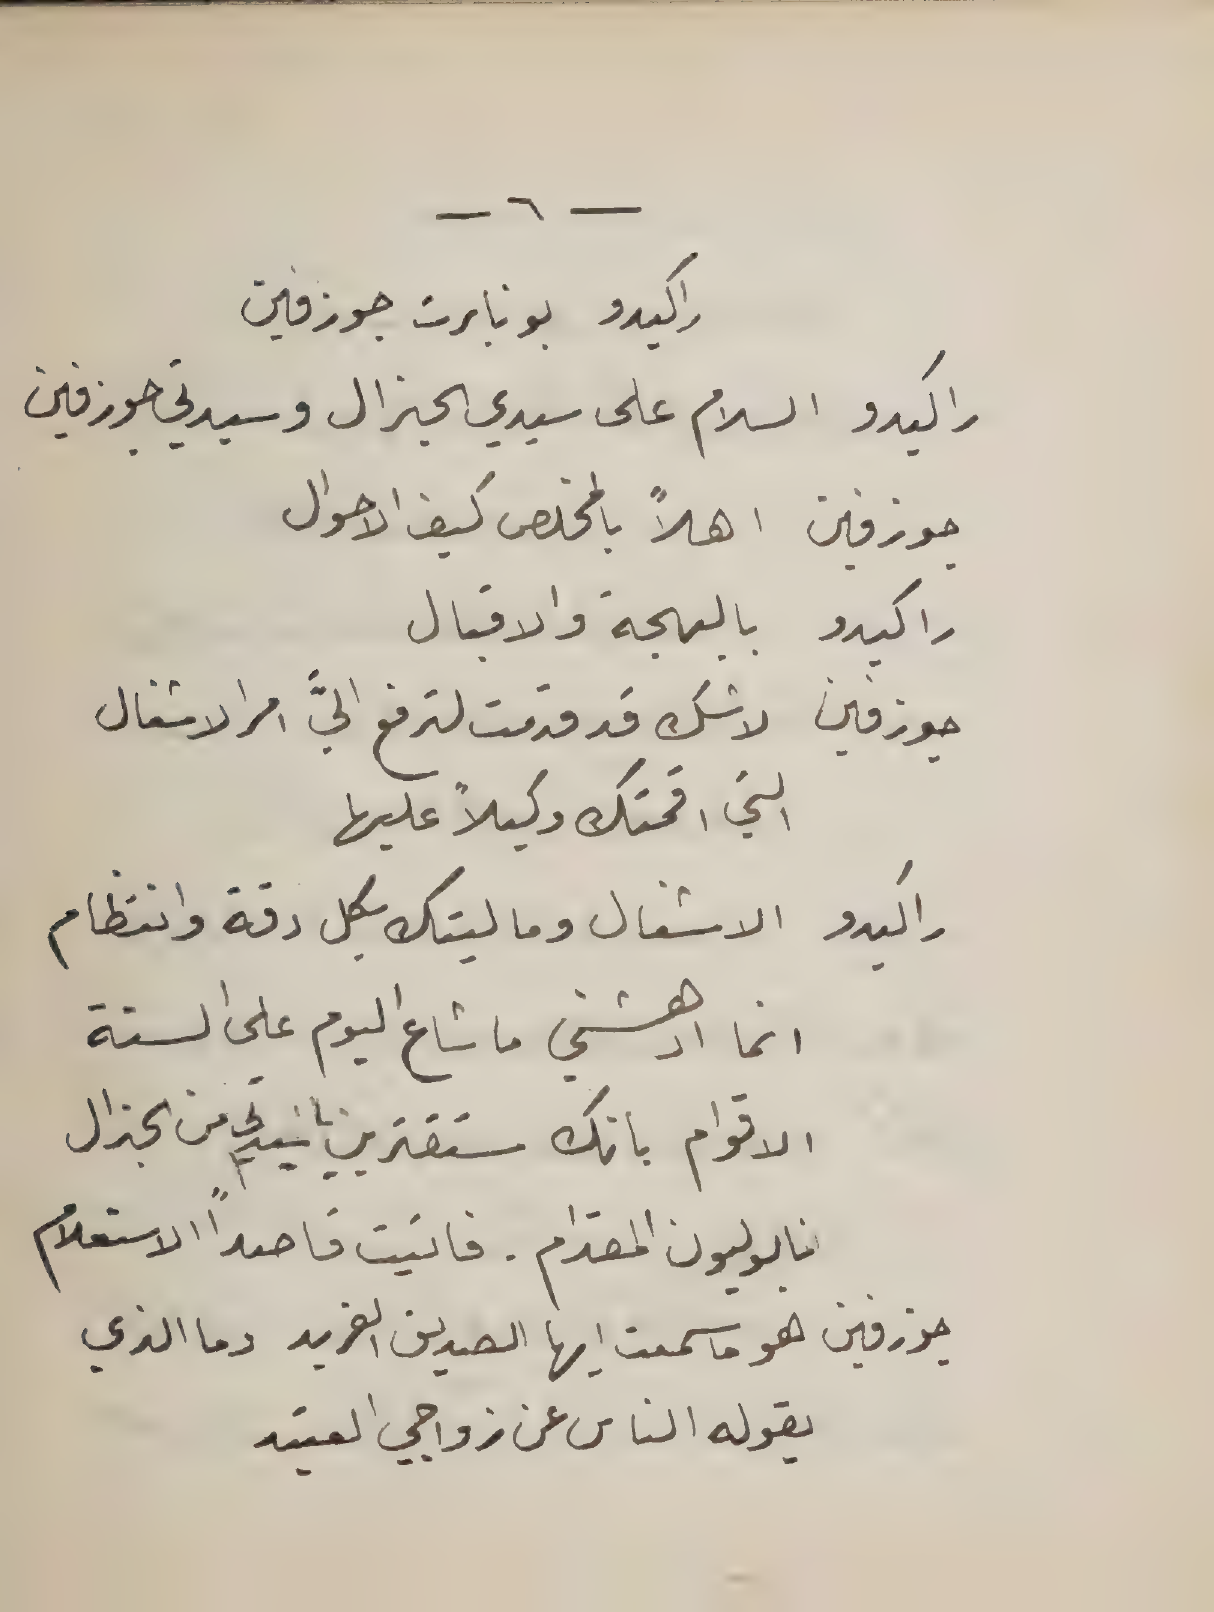 — ٦ —
راكيدو بونابرت جوزفين
راكيدو السلام على سيدي الجنرال وسيدتي جوزفين
جوزفين اهلاً بالمخلص كيف الاحوال
راكيدو بالبهجة والاقبال
جوزفين لاشك قد قدمت لترفع اليَّ امر الاشغال
التي اقمتك وكيلاً عليها
راكيدو الاشغال وماليتك بكل دقة وانتظام
انما ادهشني ما شاع اليوم على السنة
الاقوام بانك ستقترنين يا سيدتي من الجنرال
نابوليون المقدام . فاتيت قاصداً الاستعلام
جوزفين هو ما سمعت ايها الصديق الفريد وما الذي
يقوله الناس عن زواجي العتيد